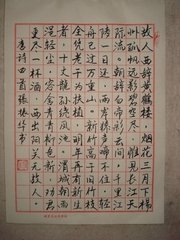 故人西辞黄鹤楼 烟花三月下扬
州 孤帆远影碧空尽 惟见长江天
际流 朝辞白帝彩云间 千里江
陵一日还 两岸猿声啼不住 轻
舟已过万重山 新竹高于旧竹枝
全凭老干为扶持 明年再有新生
者 十丈龙孙绕凤池 渭城朝雨
浥轻尘 客舍青青柳色新 劝君
更尽一杯酒 西出阳关无故人
唐诗四首 张